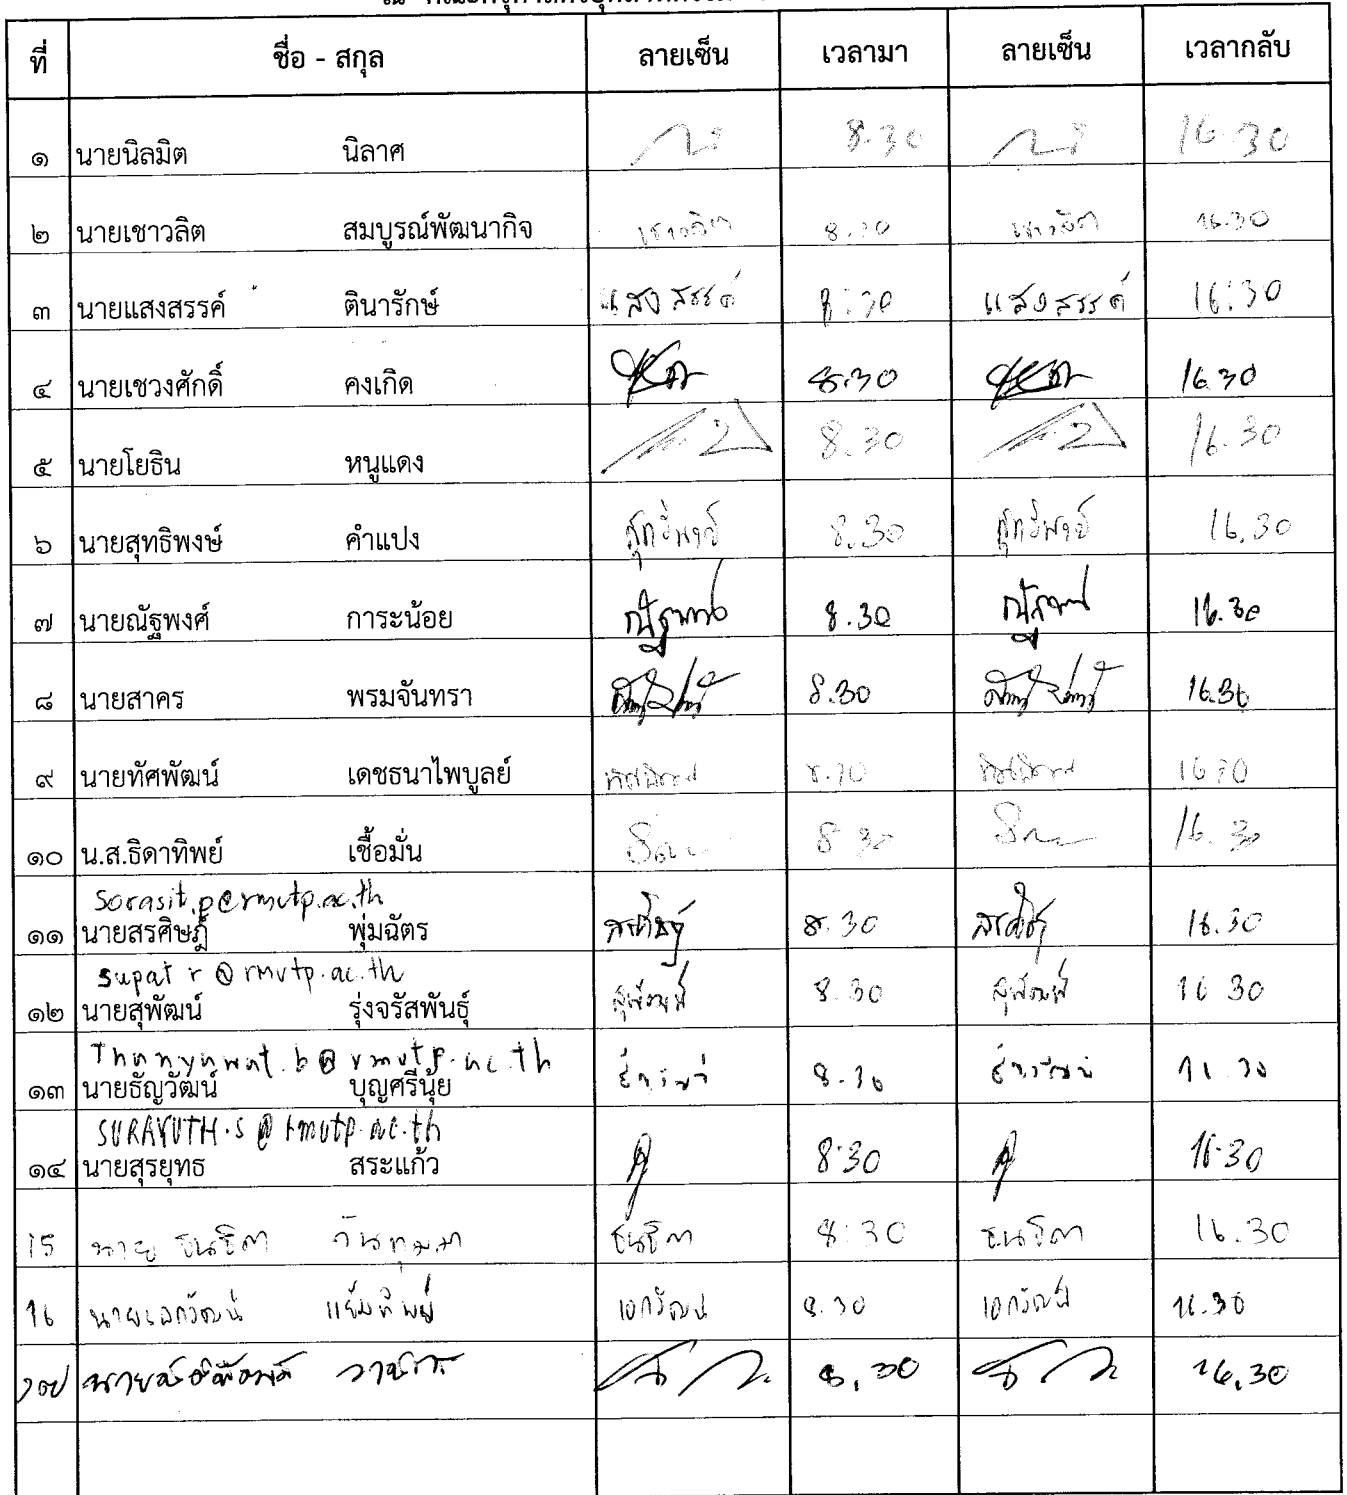 ที่ ชื่อ - สกุล ลายเซ็น เวลามา ลายเซ็น เวลากลับ
๑ นายนิลมิต นิลาศ 8.30 16.30
๒ นายเชาวลิต สมบูรณ์พัฒนากิจ เชาวลิต 8.30 เชาวลิต 16.30
๓ นายแสงสรรค์ ตินารักษ์ แสงสรรค์ 8:30 แสงสรรค์ 16:30
๔ นายเชวงศักดิ์ คงเกิด 8.30 16.30
๕ นายโยธิน หนูแดง 8.30 16.30
๖ นายสุทธิพงษ์ คำแปง สุทธิพงษ์ 8.30 สุทธิพงษ์ 16.30
๗ นายณัฐพงศ์ การะน้อย ณัฐพงศ์ 8.30 ณัฐพงศ์ 16.30
๘ นายสาคร พรมจันทรา 8.30 16.30
๙ นายทัศพัฒน์ เดชธนาไพบูลย์ 8.30 16.30
๑๐ น.ส.ธิดาทิพย์ เชื้อมั่น 8.30 16.30
sorasit.p@rmutp.ac.th
๑๑ นายสรศิษฎ์ พุ่มฉัตร 8.30 16.30
supat r @ rmutp.ac.th
๑๒ นายสุพัฒน์ รุ่งจรัสพันธุ์ สุพัฒน์ 8.30 สุพัฒน์ 16 30
Thanyawat.b@rmutp.ac.th
๑๓ นายธัญวัฒน์ บุญศรีนุ้ย ธัญวัฒน์ 8.30 ธัญวัฒน์ 16.30
SURAYUTH.S@rmutp.ac.th
๑๔ นายสุรยุทธ สระแก้ว 8.30 16.30
15 นาย ธนธิดา ธนธิดา 8:30 ธนธิดา 16.30
16 นายเอกวัฒน์ แย้มทิพย์ เอกวัฒน์ 8.30 เอกวัฒน์ 16.30
๑๗ 8.30 16.30